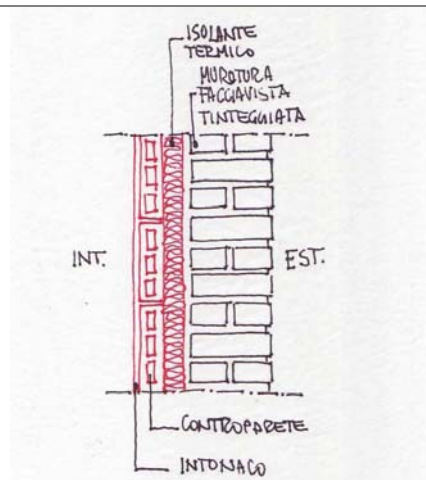 ISOLANTE
TERMICO
MURATURA
FACCIAVISTA
TINTEGGIATA
INT.
EST.
CONTROPARETE
INTONACO